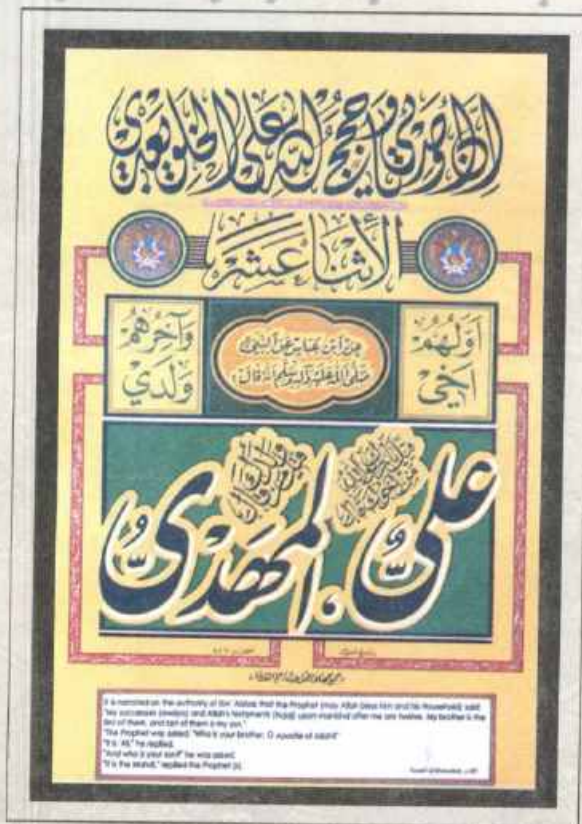 إن أوصيائي وحجج الله على الخلق بعدي
الأثنا عشر
أولهم أخي
عن ابن عباس عن النبي صلى الله عليه وآله وسلم أنه قال:
وآخرهم ولدي
علي، المهدي
It is narrated on the authority of Ibn 'Abbas that the Prophet (may Allah bless him and his Household) said:
"My successors (awsiya) and Allah's testaments (hujaj) upon mankind after me are twelve. My brother is the
first of them, and last of them is my son."
The Prophet was asked: "Who is your brother, O apostle of Allah?"
"It is 'Ali," he replied.
"And who is your son?" he was asked.
"It is the Mahdi," replied the Prophet (s).